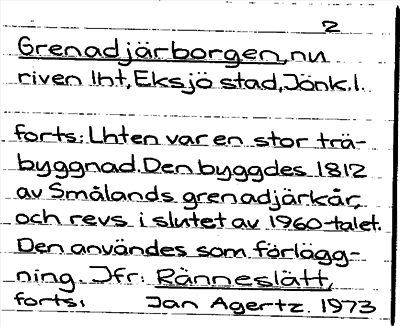 2
Grenadjärborgen, nu
riven lht, Eksjö stad, Jönk.l.
forts: Lhten var en stor trä-
byggnad. Den byggdes 1812
av Smålands grenadjärkår,
och revs i slutet av 1960-talet.
Den användes som förlägg-
ning. Jfr: Ränneslätt,
forts: Jan Agertz. 1973